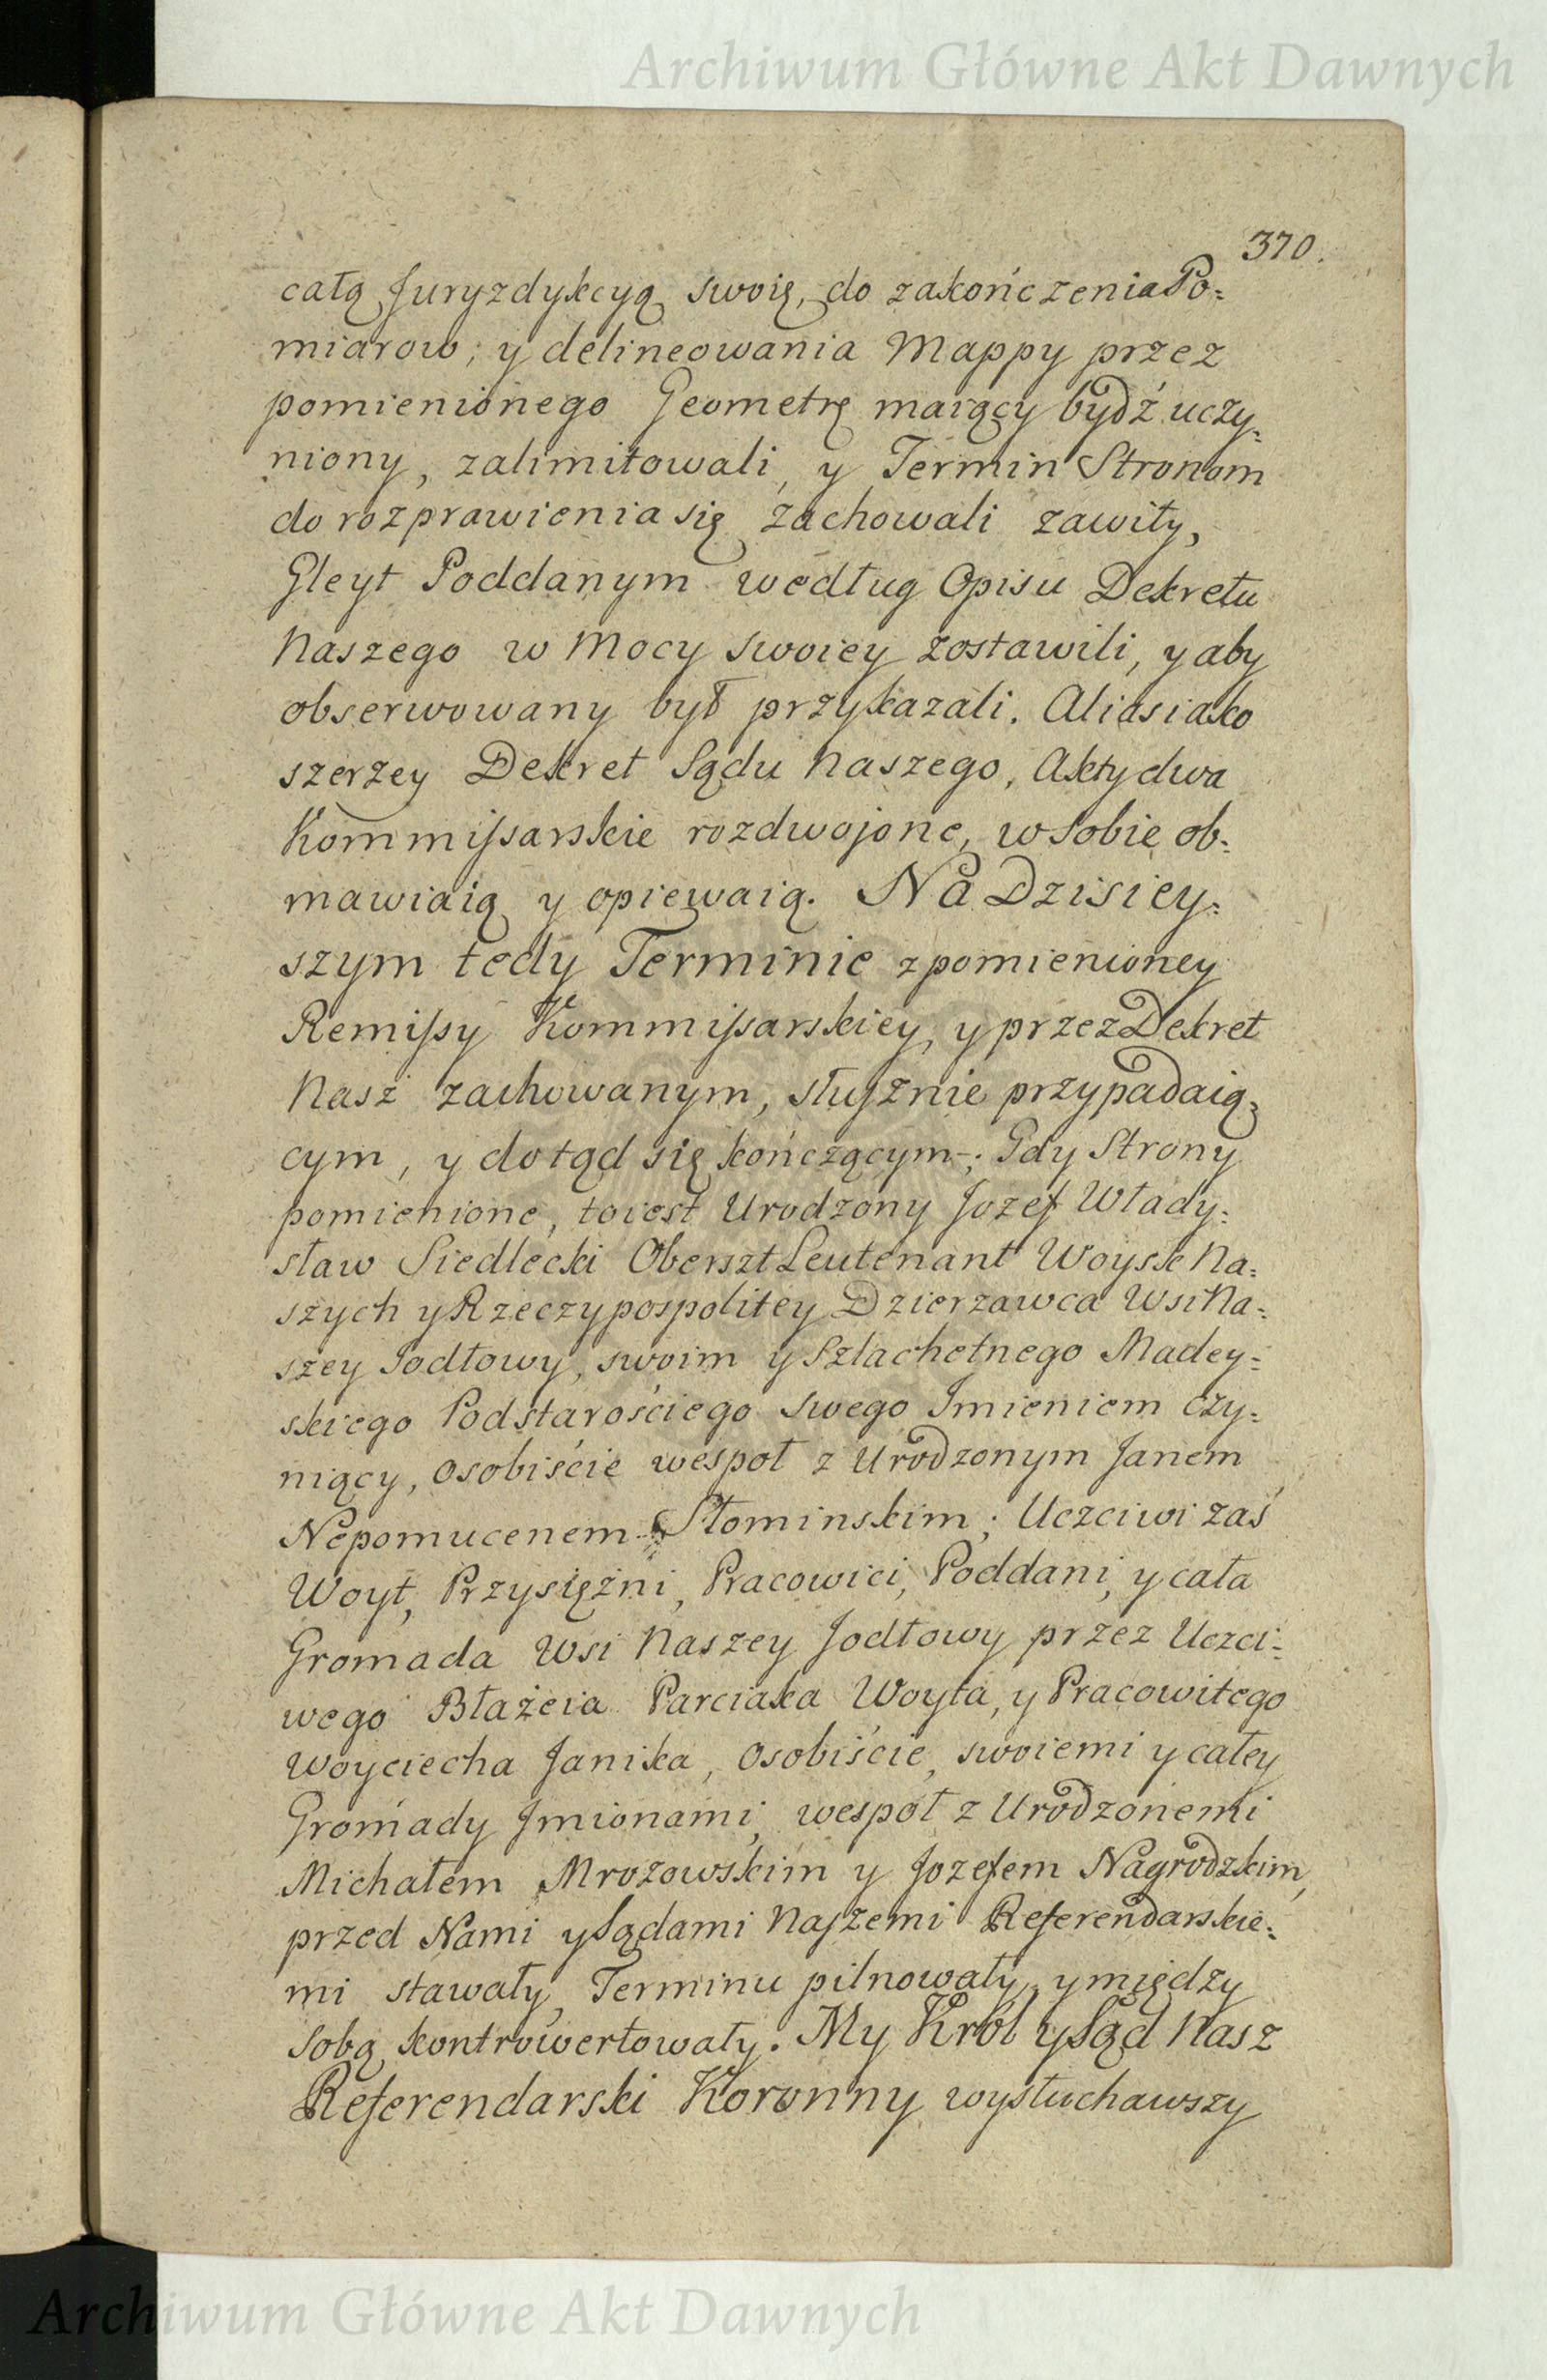 Archiwum Główne Akt Dawnych
370.
całą Juryzdykcyą swoię, do zakończenia Po=
miarow; y delineowania Mappy przez
pomienionego Geometrę maiący bydź uczy=
niony, zalimitowali, y Termin Stronom
do rozprawienia się zachowali zawity,
Gleyt Poddanym według Opisu Dekretu
Naszego w Mocy swoiey zostawili, y aby
obserwowany był przykazali. Alias iako
szerzey Dekret Sądu Naszego, Akty dwa
Kommissarskie rozdwojone, w sobie ob=
mawiaią y opiewaią. Na Dzisiey=
szym tedy Terminie z pomienioney
Remissy Kommissarskiey, y przez Dekret
Nasz zachowanym, słusznie przypadaią=
cym, y dotąd się kończącym; Gdy Strony
pomienione, toiest Urodzony Jozef Włady=
sław Siedlecki Oberszt Leutenant Woysk Na=
szych y Rzeczypospolitey Dzierzawca Wsi Na=
szey Jodłowy, swoim y Szlachetnego Madey=
skiego Podstarościego swego Imieniem czy=
niący, osobiście wespoł z Urodzonym Janem
Nepomucenem Słominskim; Uczciwi zaś
Woyt, Przysiężni, Pracowici, Poddani, y cała
Gromada Wsi Naszey Jodłowy przez Uczci=
wego Błażeia Parciaka Woyta, y Pracowitego
Woyciecha Janika, osobiście, swoiemi y całey
Gromady Jmionami, wespoł z Urodzonemi
Michałem Mrozowskim y Jozefem Nagrodzkim,
przed Nami y Sądami Naszemi Referendarskie=
mi stawały, Terminu pilnowały, y między
sobą kontrowertowały. My Krol y Sąd Nasz
Referendarski Koronny wysłuchawszy
Archiwum Główne Akt Dawnych